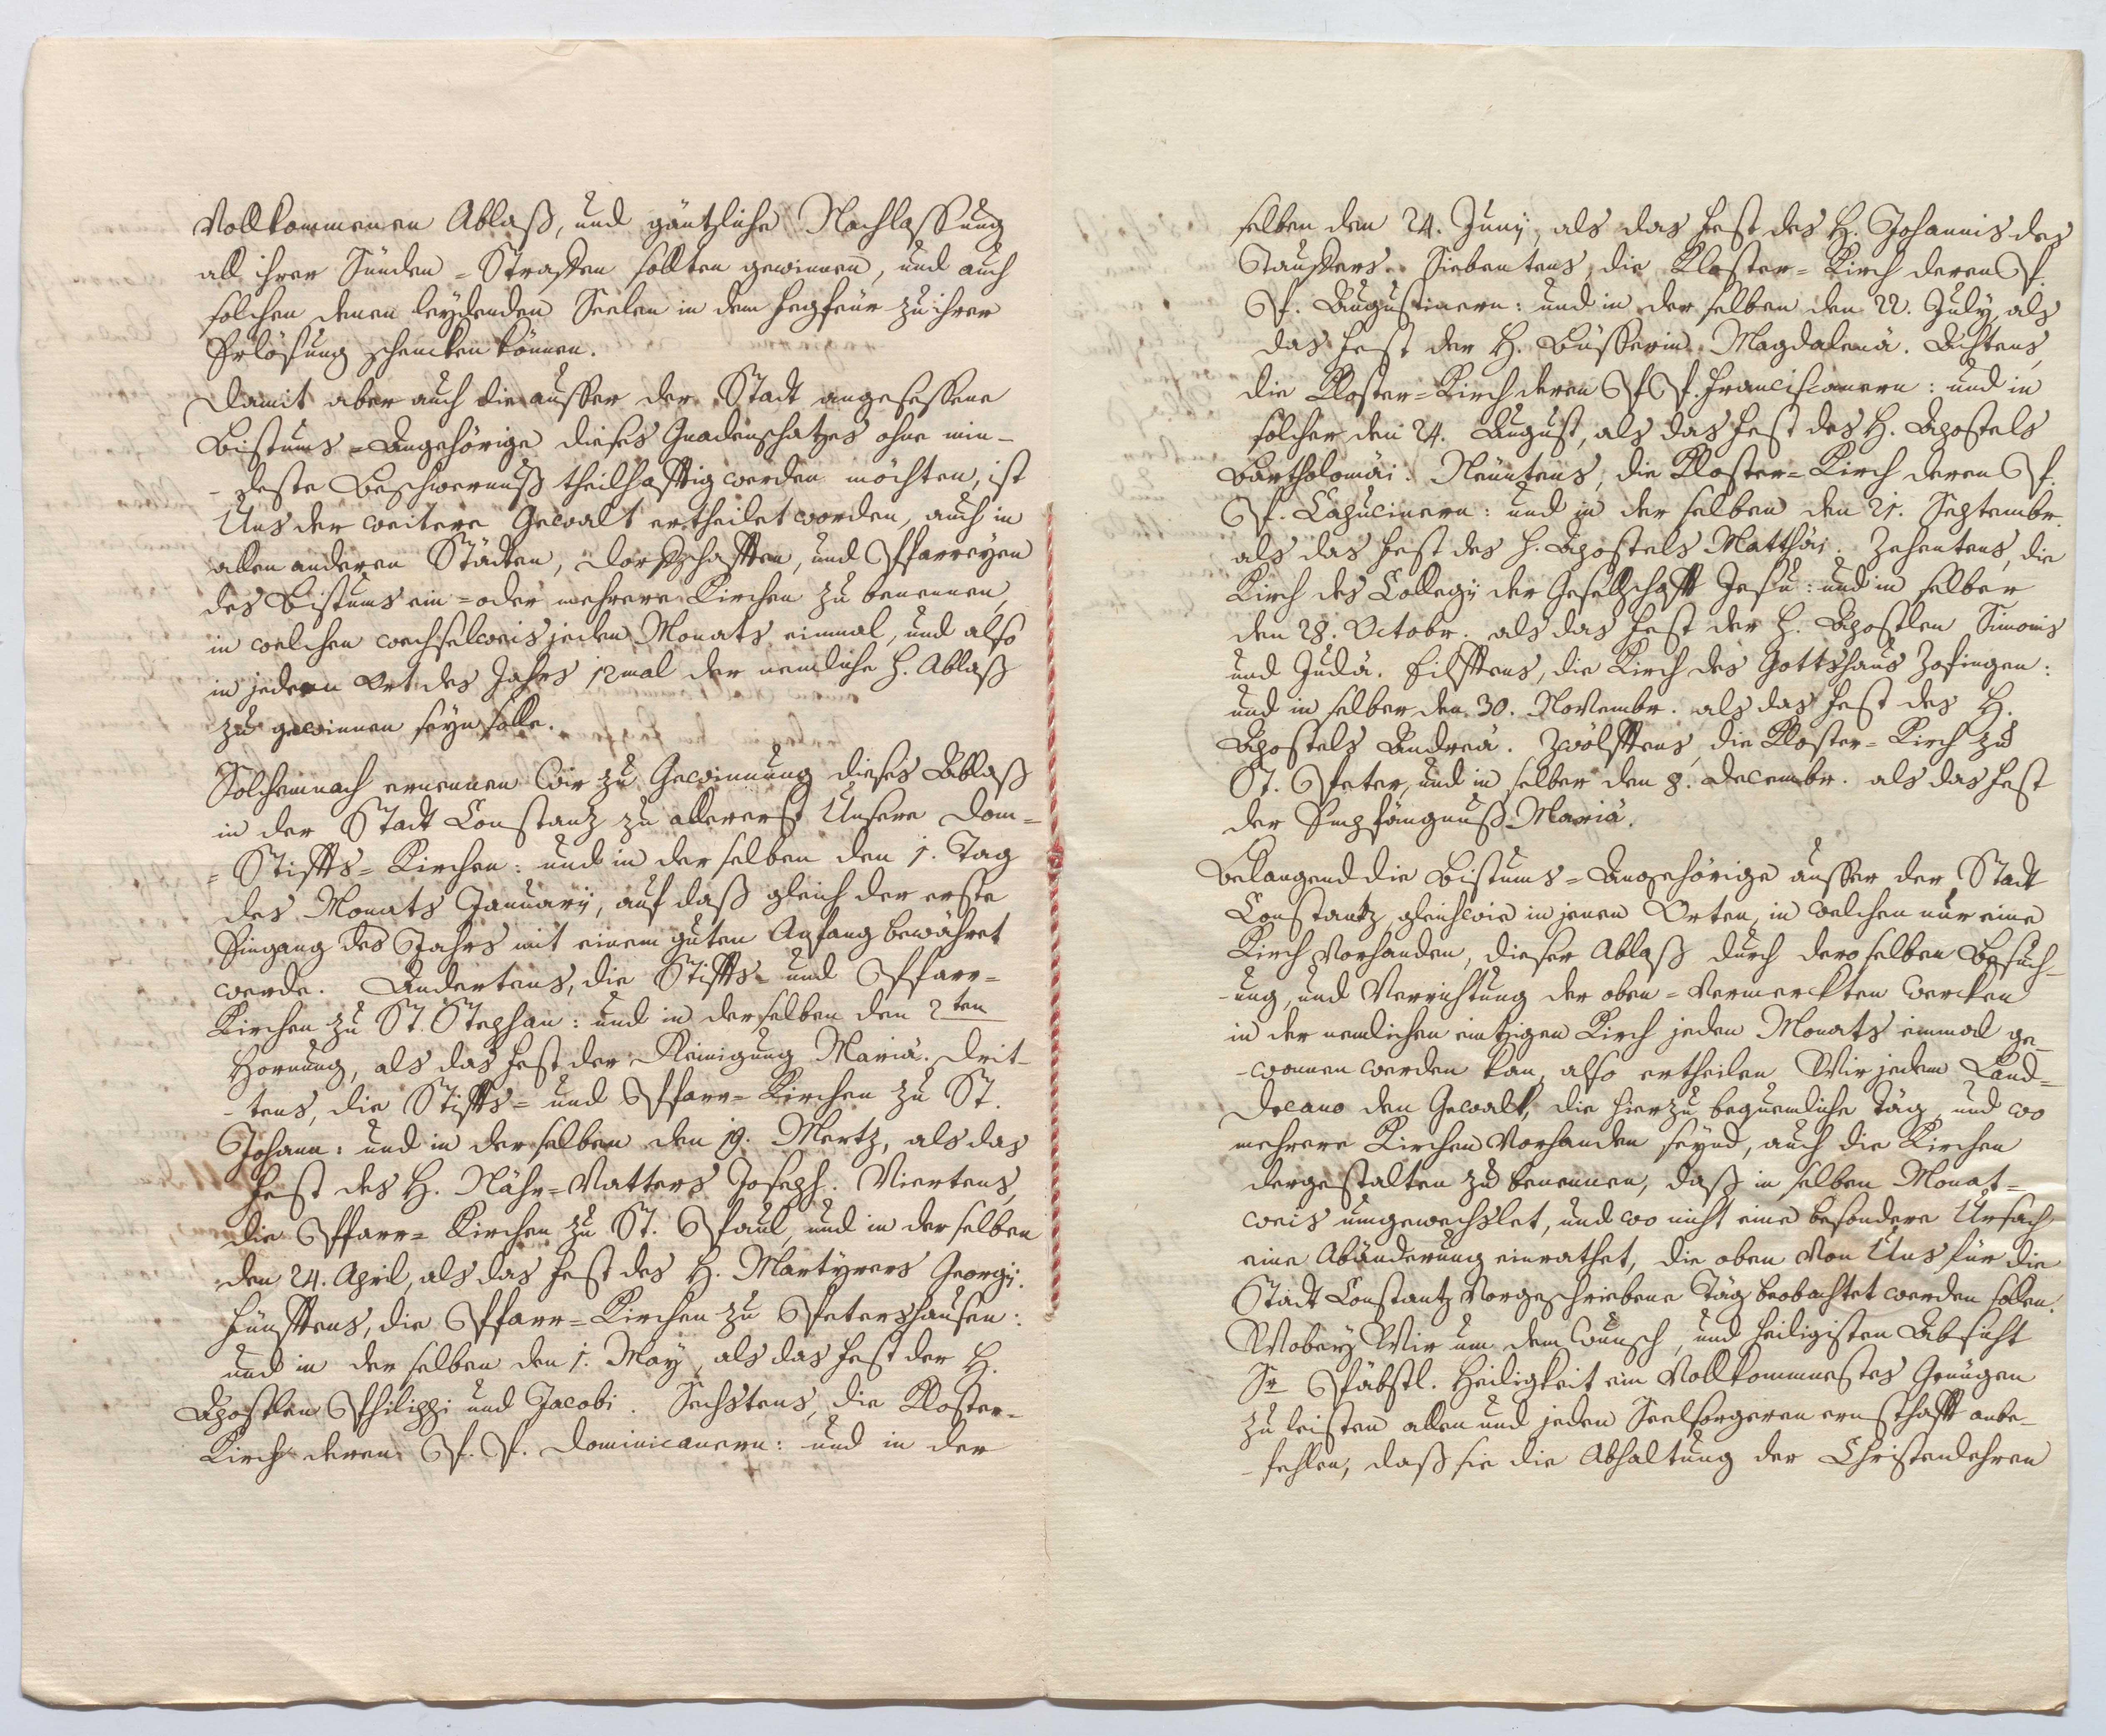 Vollkommenen Ablaß, und gäntzliche Nachlassung
all ihrer Sünden-Straffen sollten gewinnen, und auch
solchen denen leydenden Seelen in dem Fegfeür zu ihrer
Erlösung schencken können.
Damit aber auch die ausser der Stadt angesessene
Bistums-Angehörige dieses Gnadenschatzes ohne min-
-deste Beschwernuß theilhafftig werden möchten, ist
Uns der weitere Gewalt ertheilet worden, auch in
allen anderen Städten, Dorffschafften, und Pfarreyen
des Bistums ein- oder mehrere Kirchen zu benennen,
in welchen wechselweis jeden Monats einmal, und also
in jedem Ort des Jahrs 12mal der nemliche H. Ablaß
zu gewinnen seyn solle.
Solchemnach ernennen Wir zu Gewinnung dieses Ablaß
in der Stadt Constanz zu allererst Unsere Dom-
=Stiffts=Kirchen: und in derselben den 1. Tag
des Monats January, auf daß gleich der erste
Eingang des Jahrs mit einem guten Anfang bewähret
werde. Andertens, die Stiffts- und Pfarr=
Kirchen zu St. Stephan: und in derselben den 2ten
Hornung, als das Fest der Reinigung Mariä. Drit-
-tens, die Stiffts= und Pfarr=Kirchen zu St.
Johann: und in derselben den 19. Mertz, als das
Fest des H. Nähr=Vatters Joseph. Viertens,
die Pfarr=Kirchen zu St. Paul, und in derselben
den 24. April, als das Fest des H. Martyrers Georgij.
Fünfftens, die Pfarr=Kirchen zu Petershausen:
und in derselben den 1. May, als das Fest der H.
Apostlen Philippi und Jacobi. Sechstens, die Kloster-
Kirch deren P. P. Dominicanern: und in der
selben den 24. Junij, als das Fest des H. Johannis des
Tauffers. Siebentens, die Kloster=Kirch deren P.
P. Augustinern: und in derselben den 22. July, als
das Fest der H. Büsserin Magdalenä. Achtens,
die Kloster=Kirch deren P. P. Franciscanern: und in
solcher den 24. August, als das Fest des H. Apostels
Bartholomäi. Neüntens, die Kloster=Kirch deren P.
P. Capucinern: und in derselben den 21. Septembr.
als das Fest des H. Apostels Matthäi. Zehentens, die
Kirch des Collegij der Gesellschafft Jesu: und in selber
den 28. Octobr. als das Fest der H. Apostlen Simonis
und Judä. Eilfftens, die Kirch des Gottshaus Zofingen:
und in selber den 30. Novembr. als das Fest des H.
Apostels Andreä. Zwölfftens, die Kloster=Kirch zu
St. Peter, und in selber den 8. Decembr. als das Fest
der Empfängnuß Mariä.
Belangend die Bistums=Angehörige ausser der Stadt
Constantz, gleichwie in jenen Orten, in welchen nur eine
Kirch vorhanden, dieser Ablaß durch deroselben Besuch-
-ung, und Verrichtung der oben=vermerckten Wercken
in der nemlichen eintzigen Kirch jeden Monats einmal ge-
-wonnen werden kan, also ertheilen Wir jedem Land=
Decano den Gewalt, die hierzu bequemliche Täg, und wo
mehrere Kirchen vorhanden seynd, auch die Kirchen
dergestalten zu benennen, daß in selben Monat=
weis umgewechslet, und wo nicht eine besondere Ursach
eine Abänderung einrathet, die oben von Uns für die
Stadt Constantz vorgeschriebene Täg beobachtet werden sollen.
Wobey Wir um dem Wunsch, und heiligisten Absicht
Sr Päbstl. Heiligkeit ein Vollkommnestes Genügen
zu leisten allen und jeden Seelsorgeren ernsthafft anbe-
-fehlen, daß sie die Abhaltung der Christenlehren